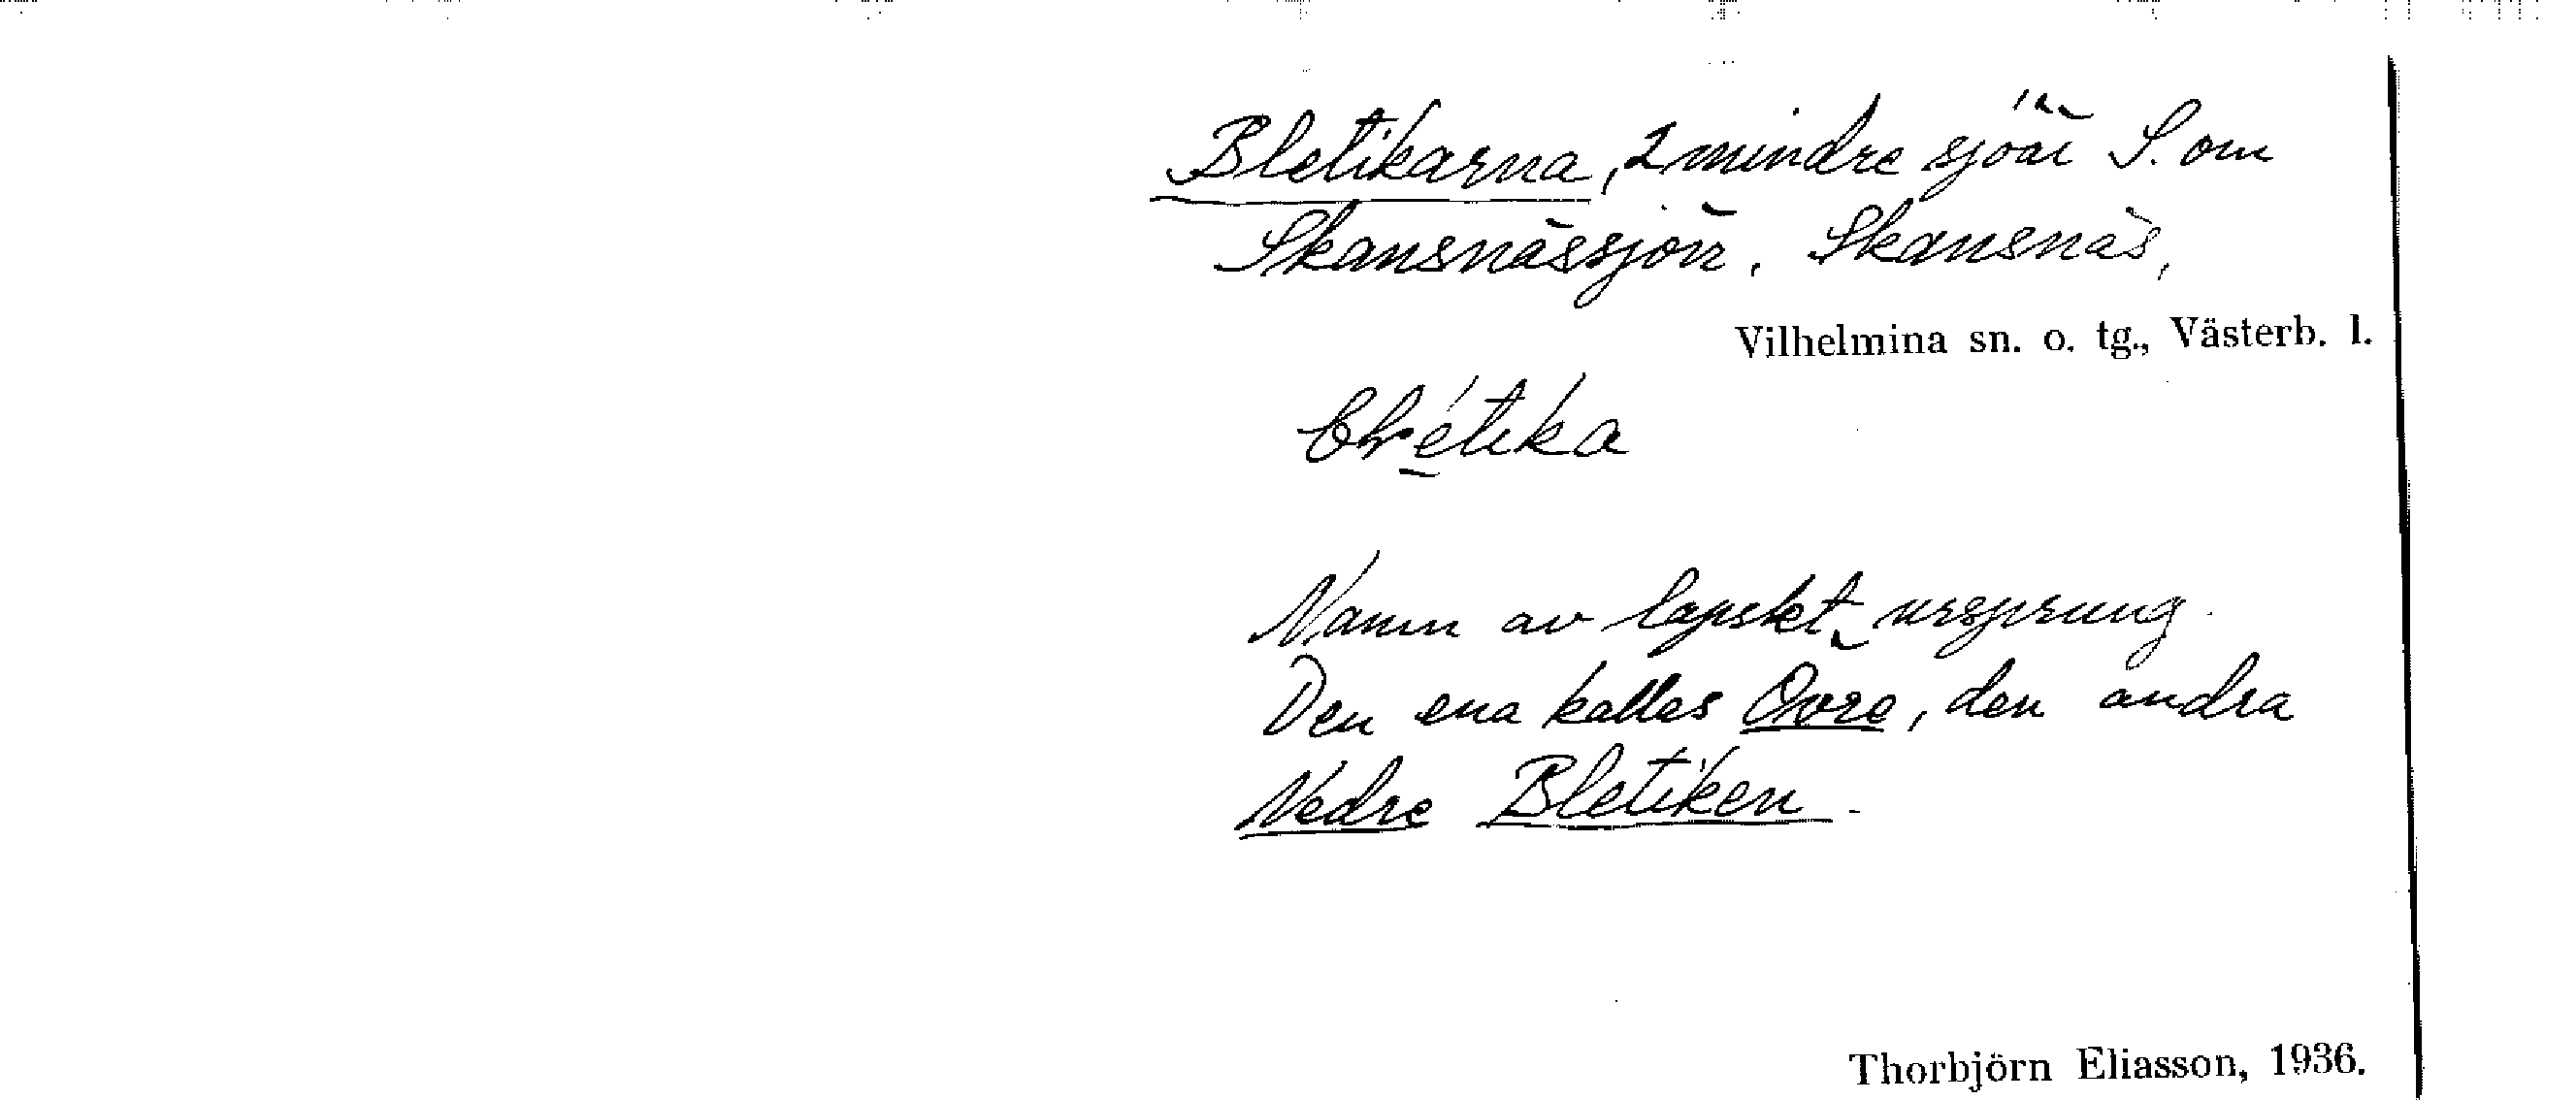 Bletikarna, 2 mindre sjöar S. om
Skansnässjön. Skansnäs,
Vilhelmina sn. o. tg., Västerb. l.
blétika
Namn av lapskt ursprung.
Den ena kallas Övre, den andra
Nedre Bletiken.
Thorbjörn Eliasson, 1936.